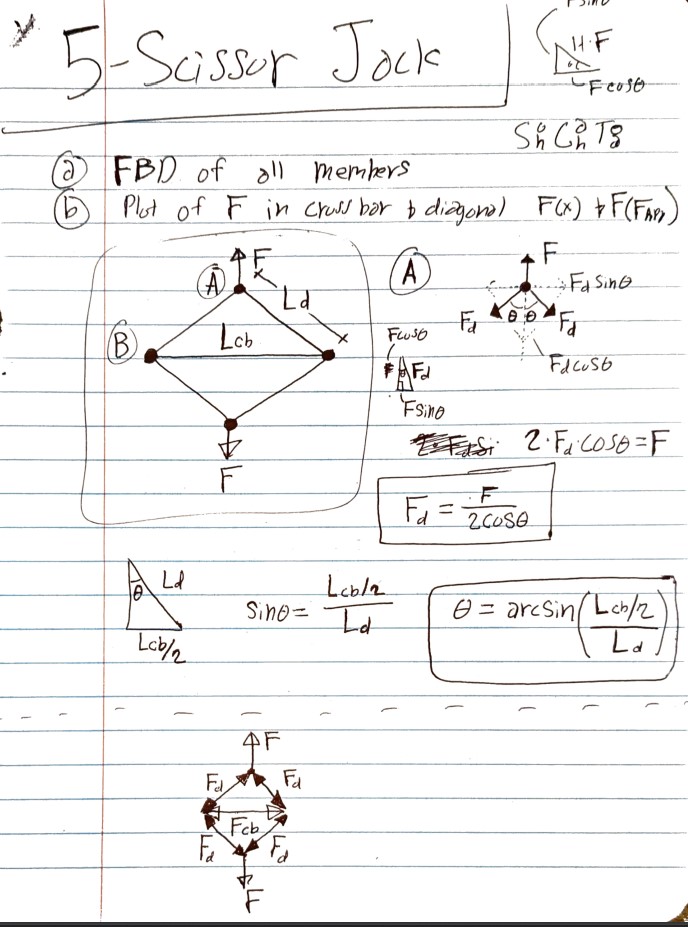 5-Scissor Jack
H·F
Fcosθ
ⓐ FBD of all members
ⓑ Plot of F in crossbar & diagonal F(x) & F(FApp)
Ⓐ F
Ld
Ⓑ Lcb
F
Ⓐ
F
Fd sinθ
Fd θ θ Fd
Fdcosθ
Fcosθ
Fd
Fsinθ
2·Fd·cosθ=F
Fd = F / 2cosθ
θ Ld
Lcb/2
sinθ = Lcb/2 / Ld
θ = arcsin(Lcb/2 / Ld)
F
Fd Fd
Fcb
Fd Fd
F